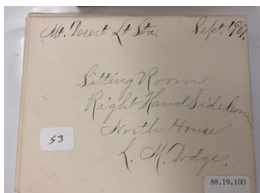 Mt. Desert Lt Sta. Sept. 190
Sitting Room
Right Hand Side
North House
L. M. Dodge.
53
88.19.100